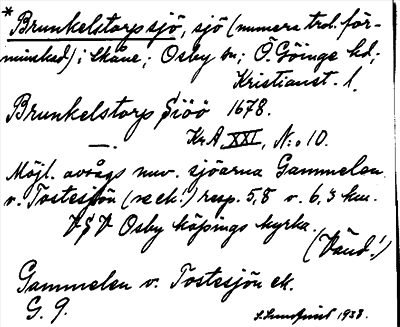 * Brunkelstorp sjö, sjö (numera trol. för-
minskad) i Skåne; Osby sn; Ö. Göinge hd;
Kristianst. l.
Brunkelstorp Siöö 1678.
—. KrA XXI, N:o 10.
Möjl. avsågs nuv. sjöarna Gammelen
o. Tostesjön (se ek.!) resp. 5,8 o. 6,3 km.
VSV Osby köpings kyrka.
(Vänd!)
Gammelen o. Tostesjön ek.
G. 9.
S. Lundquist 1938.